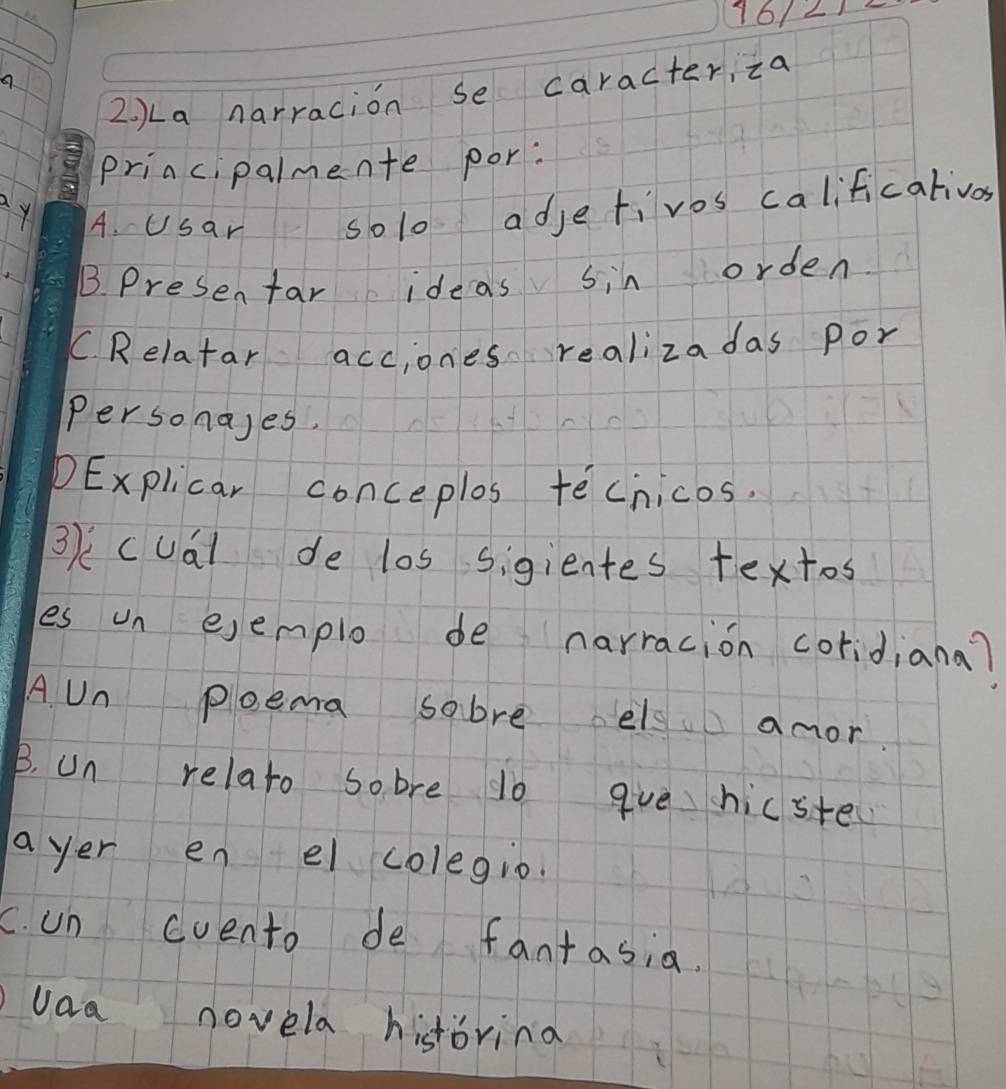 2.) La narración se caracteriza
principalmente por:
A. Usar solo adjetivos calificativos
B. Presentar ideas sin orden
C. Relatar acciones realizadas por
personajes.
D Explicar conceplos técnicos.
3) ¿cuál de los sigientes textos
es un ejemplo de narración cotidiana?
A. Un poema sobre el amor.
B. Un relato sobre lo que hicste
ayer en el colegio.
C. un cuento de fantasia.
) Uaa novela histórina